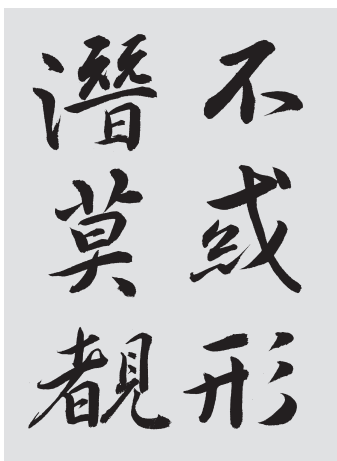 不惑形
潛莫覩